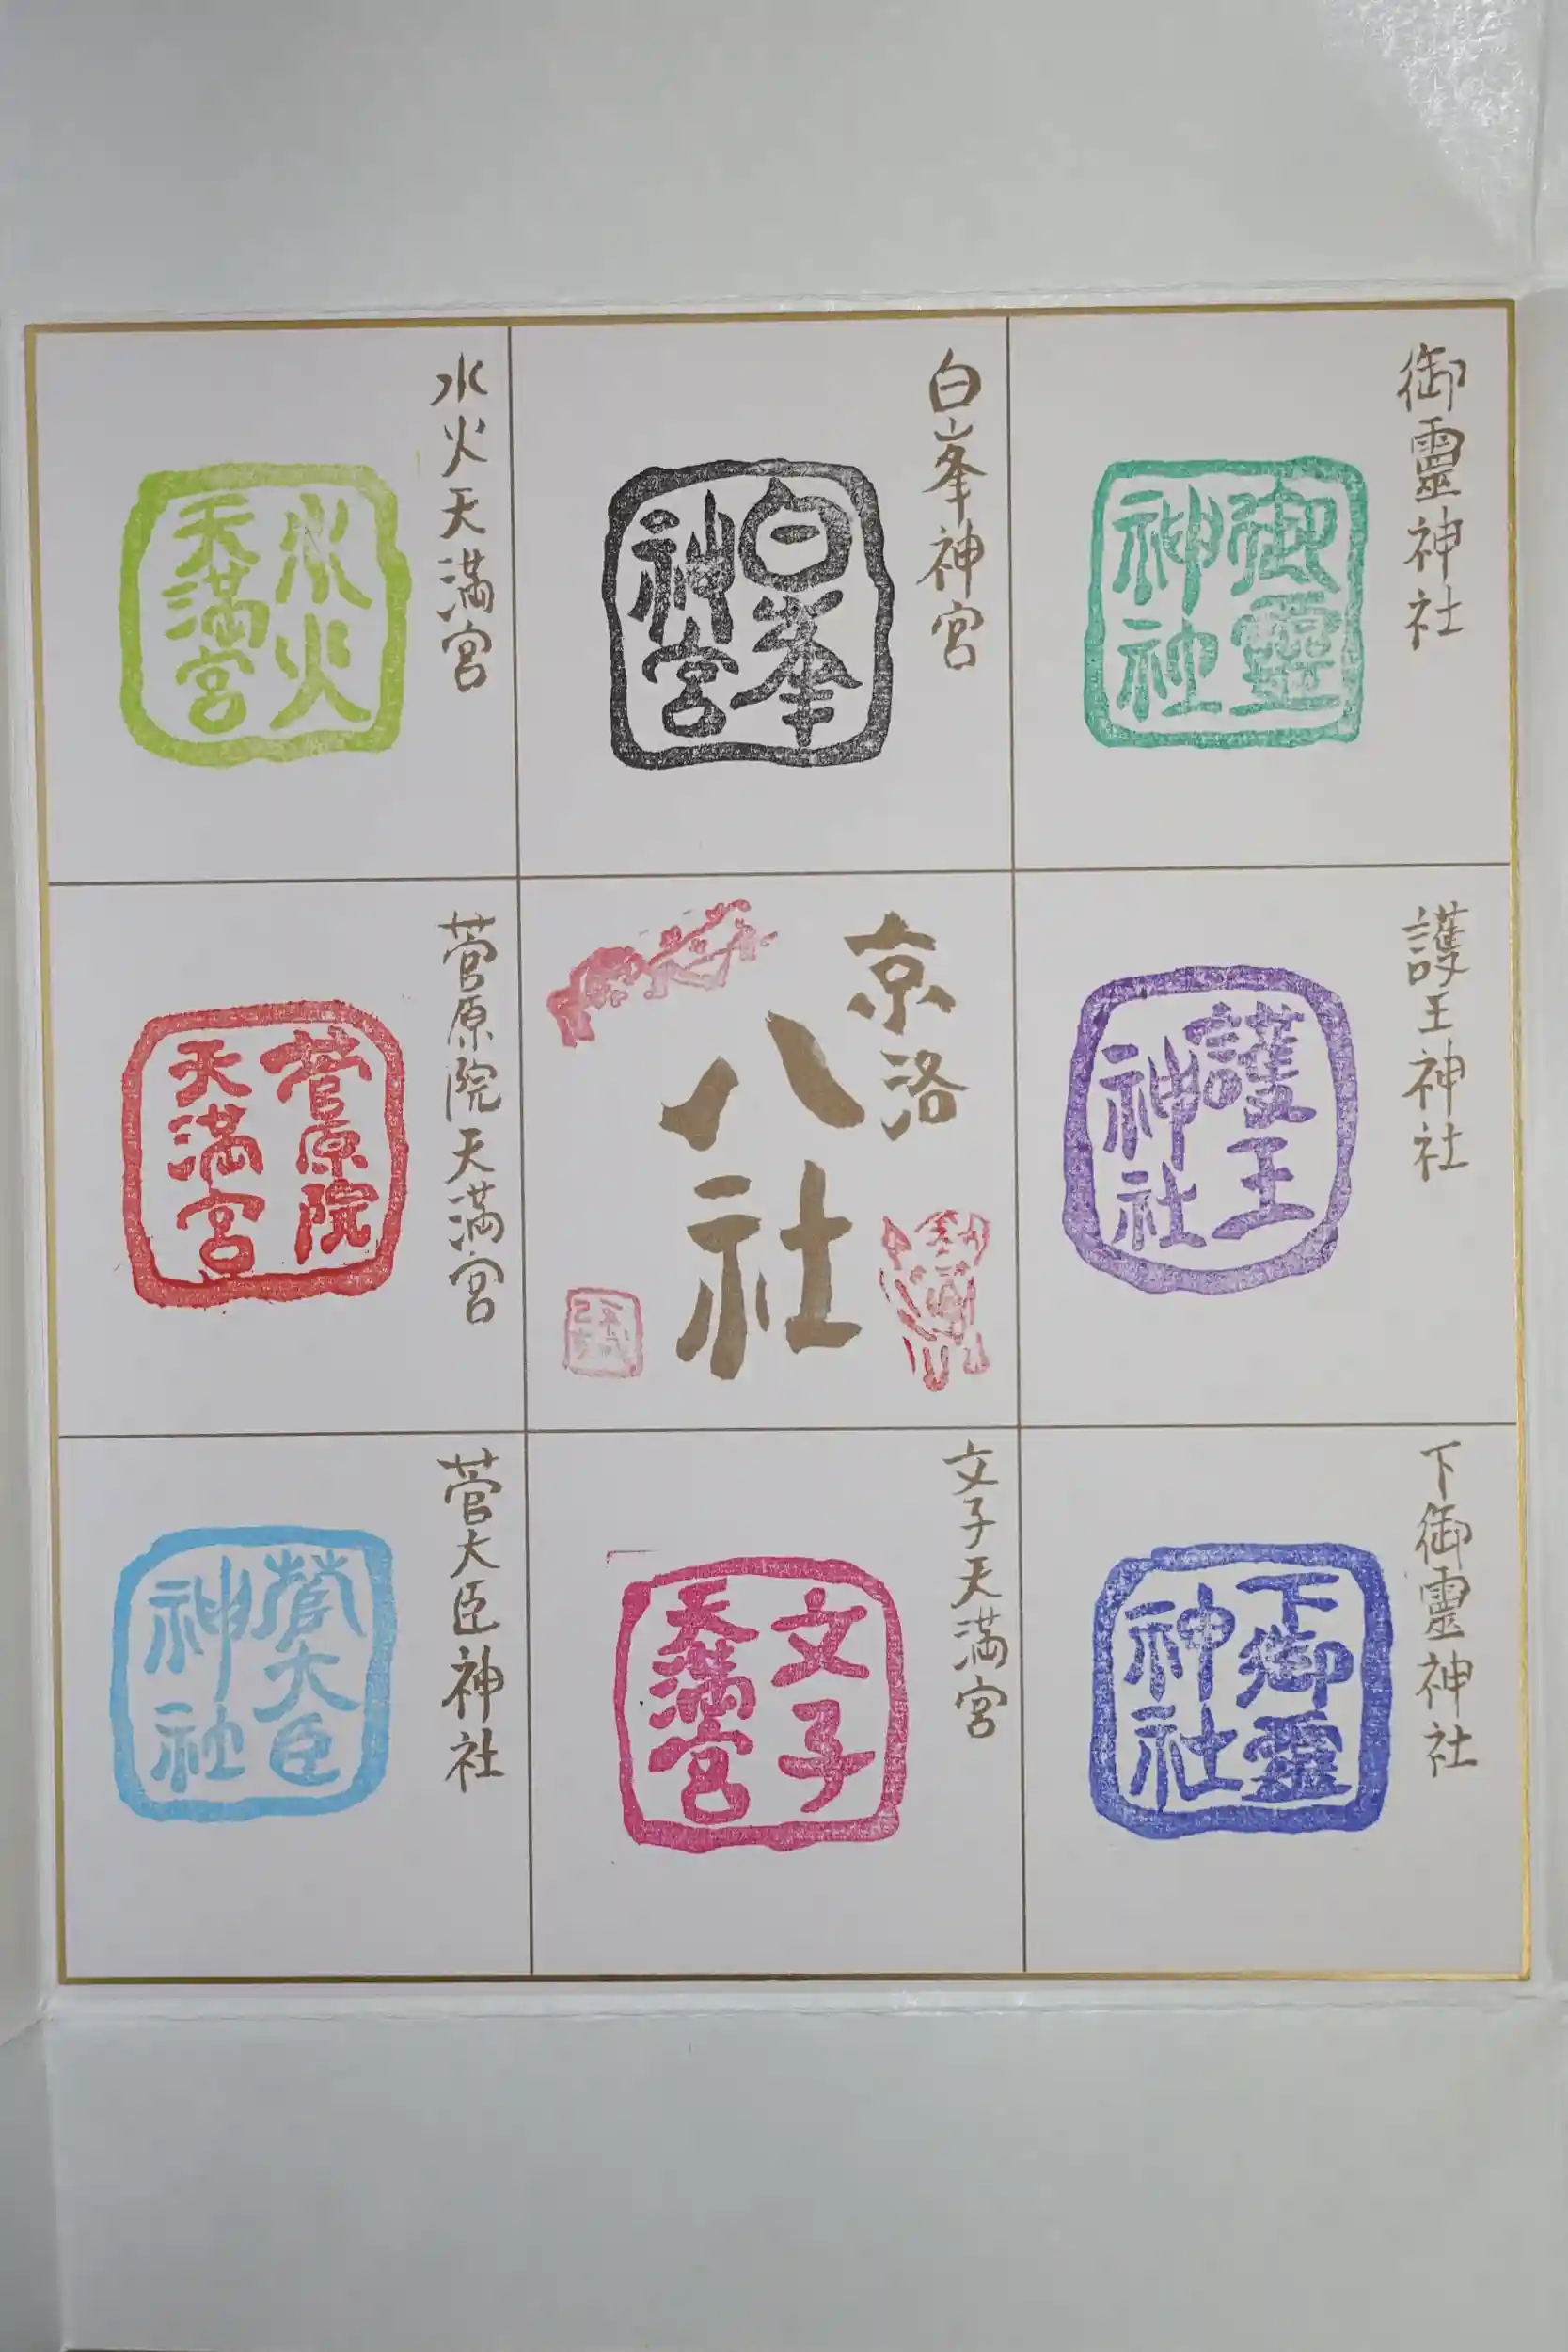 御靈神社
御靈
神社
白峯神宮
白峯
神宮
水火天満宮
水火
天満宮
護王神社
護王
神社
京洛
八社
菅原院天満宮
菅原院
天満宮
下御靈神社
下御靈
神社
文子天満宮
文子
天満宮
菅大臣神社
菅大臣
神社